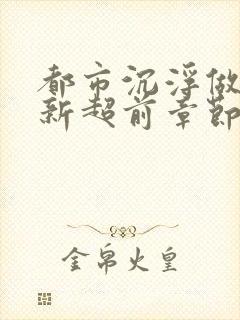 都市沉浮做
新超前章節
金帛火皇